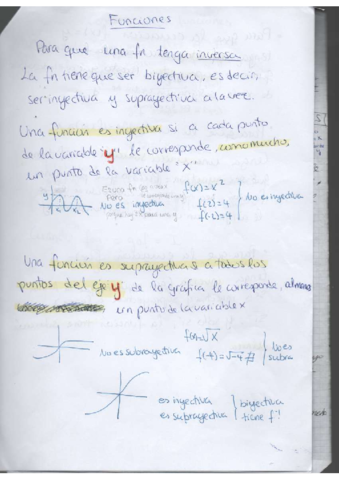 Funciones
Para que una fn tenga inversa
La fn tiene que ser biyectiva, es decir,
ser inyectiva y suprayectiva a la vez.
Una función es inyectiva si a cada punto
de la variable "y" le corresponde, como mucho,
un punto de la variable "x"
Es una fn
Pero
No es inyectiva
f(x)=x²
f(2)=4
f(-2)=4
No es inyectiva
Una función es suprayectiva si a todos los
puntos del eje y de la gráfica le corresponde, al menos
un punto de la variable x
No es subrayectiva
f(x)=√x
f(-4)=√-4 ∄
No es
subra
es inyectiva
es suprayectiva
biyectiva
tiene f⁻¹